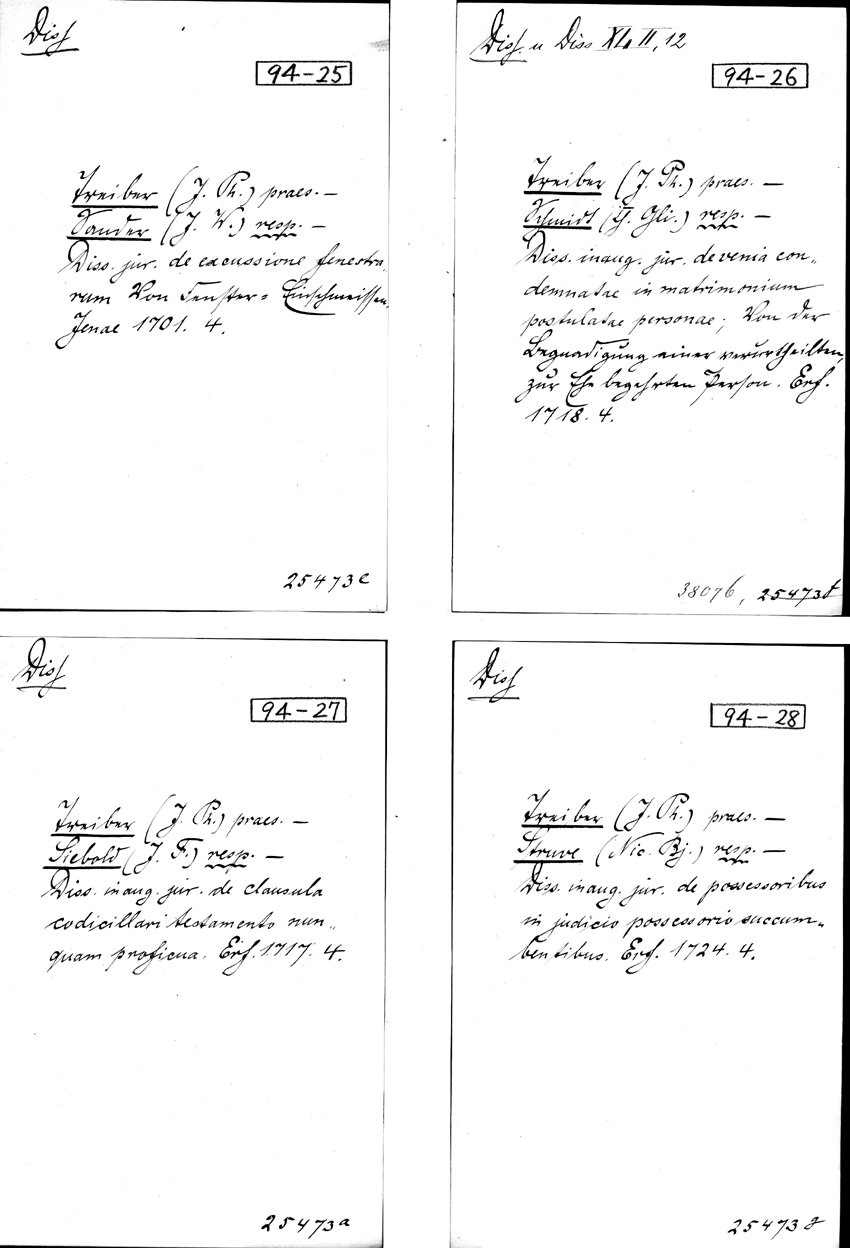 Diss
94-25
Treiber (J. Ph.) praes. —
Sander (J. W.) resp. —
Diss. jur. de excussione fenestra-
rum Von Fenster= Einschmeissen.
Jenae 1701. 4.
25473c
Diss. u Diss XLII, 12
94-26
Treiber (J. Ph.) praes. —
Schmidt Gli.) resp. —
Diss. inaug. jur. de venia con„
demnatae in matrimonium
postulatae personae; Von der
Begnadigung einer verurtheilten,
zur Ehe begehrten Person. Erf.
1718. 4.
38076, 25473f
Diss
94-27
Treiber (J. Ph.) praes. —
Siebold (J. F.) resp. —
Diss. inaug. jur. de clausula
codicillari testamento nun„
quam proficua. Erf. 1717. 4.
25473a
Diss
94-28
Treiber (J. Ph.) praes. —
Struve (Nic. Bj.) resp. —
Diss. inaug. jur. de possessoribus
in judicio possessorio succum„
bentibus. Erf. 1724. 4.
25473g